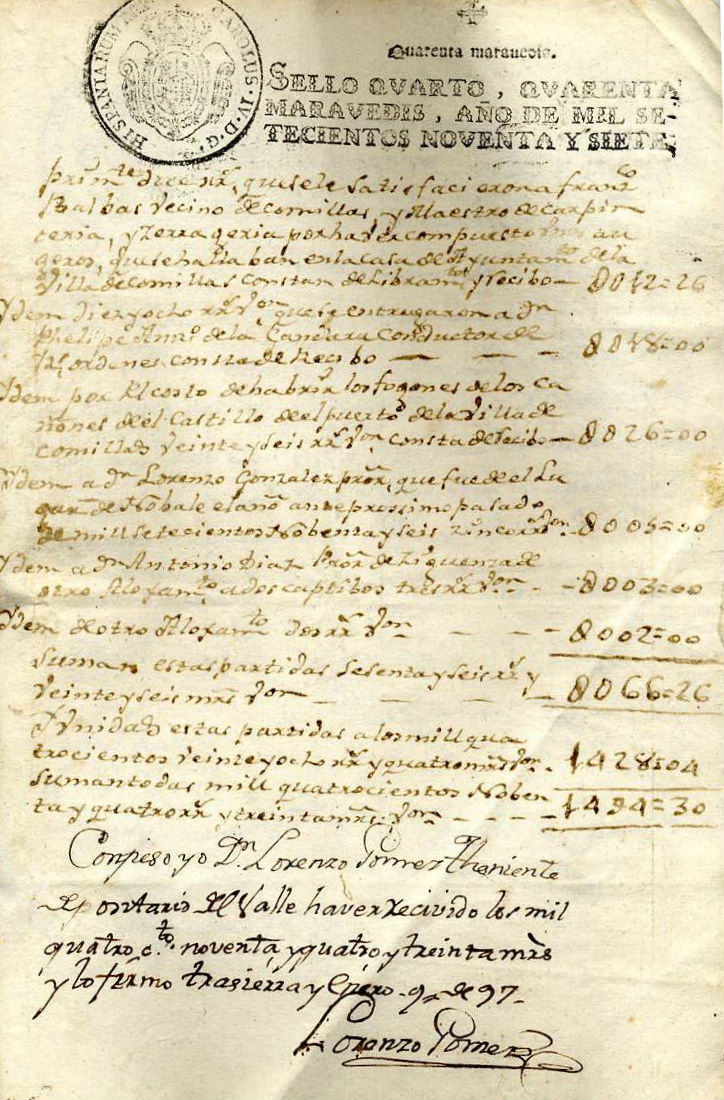 HISPANIARUM CAROLUS · IV · D · G ·
Quarenta maravedis.
SELLO QVARTO, QVARENTA
MARAVEDIS, AÑO DE MIL SE-
TECIENTOS NOVENTA Y SIETE.
que se le satisfacieron a Franco
Balbas Vecino de Comillas, y Maestro de Carpin
teria, y Zerrageria por haver compuesto au
geros, que se hallaban en la casa de Ayuntamto de la
Villa de Comillas constan de Libramto y recibo — 8012=26
Ydem Diez y ocho rrs von que se entregaron a Dn
Phelipe de la Conductor de
ordenes consta de Recibo — — — 8018=00
Ydem por el costo de habrir los fogones de los Ca
ñones de el Castillo de el puerto de la Villa de
Comillas Veinte y seis rrs von consta de recibo — 8026=00
Ydem a Dn Lorenzo Gonzalez que fue de el Lu
gar de el año antepressimo pasado
de mill setecientos Nobenta y seis zinco rrs von - 8005=00
Ydem a Dn Antonio Diaz de
otro Aloxamto a dos captibos tres rrs von - - 8003=00
Ydem de otro Aloxamto dos rrs von - - - 8002=00
Suman estas partidas sesenta y seis rrs y
Veinte y seis mrs von - - - 8066=26
Y Vnidas estas partidas a los mill qua
trocientos Veinte y ocho rrs y quatro mrs von - 1428=04
Suman todas mill quatrocientos Noben
ta y quatro rrs y treinta mrs von - - - - 1494=30
Confieso yo Dn Lorenzo Gomez Theniente
Depositario del Valle haver Recivido los mil
quatro cto. noventa y quatro y treinta mrs
y lo firmo trasierra y Enero 9 de 97
Lorenzo Gomez